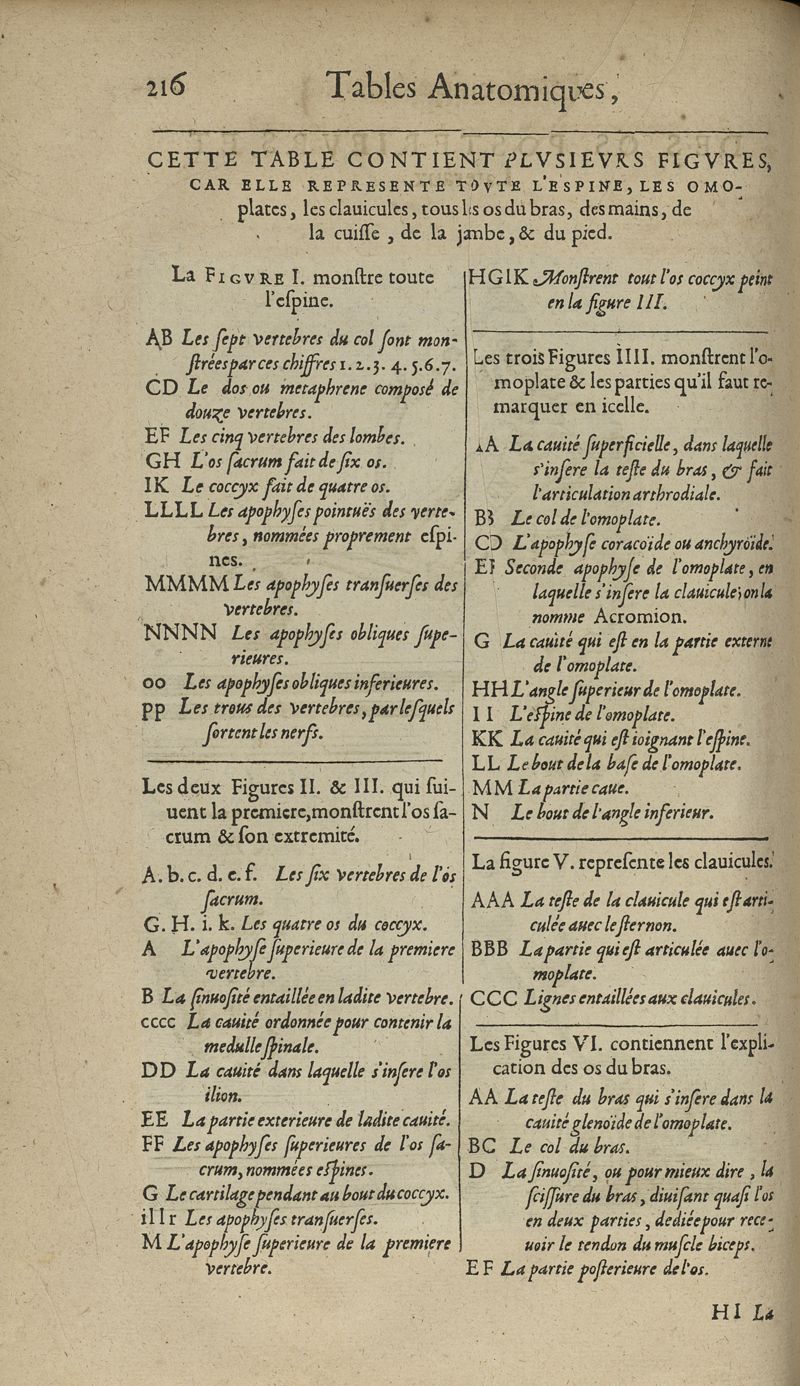 216 Tables Anatomiques,
CETTE TABLE CONTIENT PLVSIEVRS FIGVRES,
CAR ELLE REPRESENTE TOVTE L'ESPINE, LES OMO-
plates, les clauicules, tous les os du bras, des mains, de
la cuiſſe, de la jambe, & du pied.
La FIGVRE I. monſtre toute
l'eſpine.
AB Les ſept vertebres du col ſont mon-
ſtrées par ces chiffres 1. 2. 3. 4. 5. 6. 7.
CD Le dos ou metaphrene compoſé de
douze vertebres.
EF Les cinq vertebres des lombes.
GH L'os ſacrum fait de ſix os.
IK Le coccyx fait de quatre os.
LLLL Les apophyſes pointuës des verte-
bres, nommées proprement eſpi-
nes.
MMMM Les apophyſes tranſuerſes des
vertebres.
NNNN Les apophyſes obliques ſupe-
rieures.
oo Les apophyſes obliques inferieures.
pp Les trous des vertebres, par leſquels
ſortent les nerfs.
Les deux Figures II. & III. qui ſui-
uent la premiere, monſtrent l'os ſa-
crum & ſon extremité.
A. b. c. d. e. f. Les ſix vertebres de l'os
ſacrum.
G. H. i. k. Les quatre os du coccyx.
A L'apophyſe ſuperieure de la premiere
vertebre.
B La ſinuoſité entaillée en ladite vertebre.
cccc La cauité ordonnée pour contenir la
medulle ſpinale.
DD La cauité dans laquelle s'inſere l'os
ilion.
EE La partie exterieure de ladite cauité.
FF Les apophyſes ſuperieures de l'os ſa-
crum, nommées eſpines.
G Le cartilage pendant au bout du coccyx.
illr Les apophyſes tranſuerſes.
M L'apophyſe ſuperieure de la premiere
vertebre.
HGIK Monſtrent tout l'os coccyx peint
en la figure III.
Les trois Figures IIII. monſtrent l'o-
moplate & les parties qu'il faut re-
marquer en icelle.
AA La cauité ſuperficielle, dans laquelle
s'inſere la teſte du bras, & fait
l'articulation arthrodiale.
BB Le col de l'omoplate.
CD L'apophyſe coracoïde ou anchyroïde.
EF Seconde apophyſe de l'omoplate, en
laquelle s'inſere la clauicule; on la
nomme Acromion.
G La cauité qui eſt en la partie externe
de l'omoplate.
HH L'angle ſuperieur de l'omoplate.
I I L'eſpine de l'omoplate.
KK La cauité qui eſt ioignant l'eſpine.
LL Le bout de la baſe de l'omoplate.
MM La partie caue.
N Le bout de l'angle inferieur.
La figure V. repreſente les clauicules.
AAA La teſte de la clauicule qui eſt arti-
culée auec le ſternon.
BBB La partie qui eſt articulée auec l'o-
moplate.
CCC Lignes entaillées aux clauicules.
Les Figures VI. contiennent l'expli-
cation des os du bras.
AA La teſte du bras qui s'inſere dans la
cauité glenoïde de l'omoplate.
BC Le col du bras.
D La ſinuoſité, ou pour mieux dire, la
ſciſſure du bras, diuiſant quaſi l'os
en deux parties, dediée pour rece-
uoir le tendon du muſcle biceps.
E F La partie poſterieure de l'os.
HI La